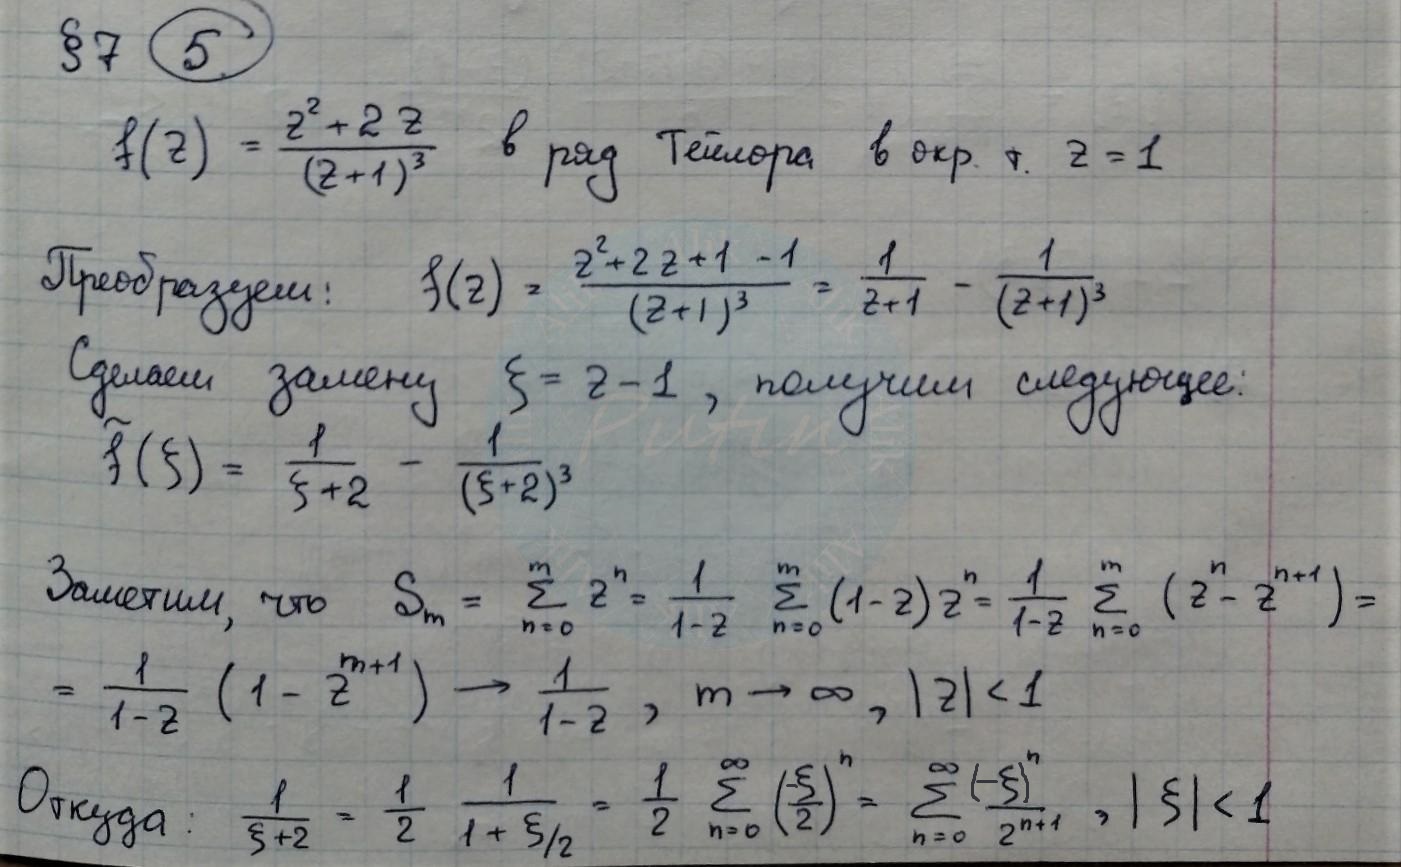 §7 5
f(z) = (z²+2z)/(z+1)³ в ряд Тейлора в окр. т. z = 1
Преобразуем: f(z) = (z²+2z+1-1)/(z+1)³ = 1/(z+1) - 1/(z+1)³
Сделаем замену ξ = z-1, получим следующее:
f̃(ξ) = 1/(ξ+2) - 1/(ξ+2)³
Заметим, что Sₘ = ∑ₙ₌₀ᵐ zⁿ = 1/(1-z) ∑ₙ₌₀ᵐ (1-z)zⁿ = 1/(1-z) ∑ₙ₌₀ᵐ (zⁿ - zⁿ⁺¹) =
= 1/(1-z) (1 - zᵐ⁺¹) → 1/(1-z), m → ∞, |z| < 1
Откуда: 1/(ξ+2) = 1/2 1/(1+ξ/2) = 1/2 ∑ₙ₌₀^∞ (-ξ/2)ⁿ = ∑ₙ₌₀^∞ (-ξ)ⁿ/2ⁿ⁺¹, |ξ| < 1